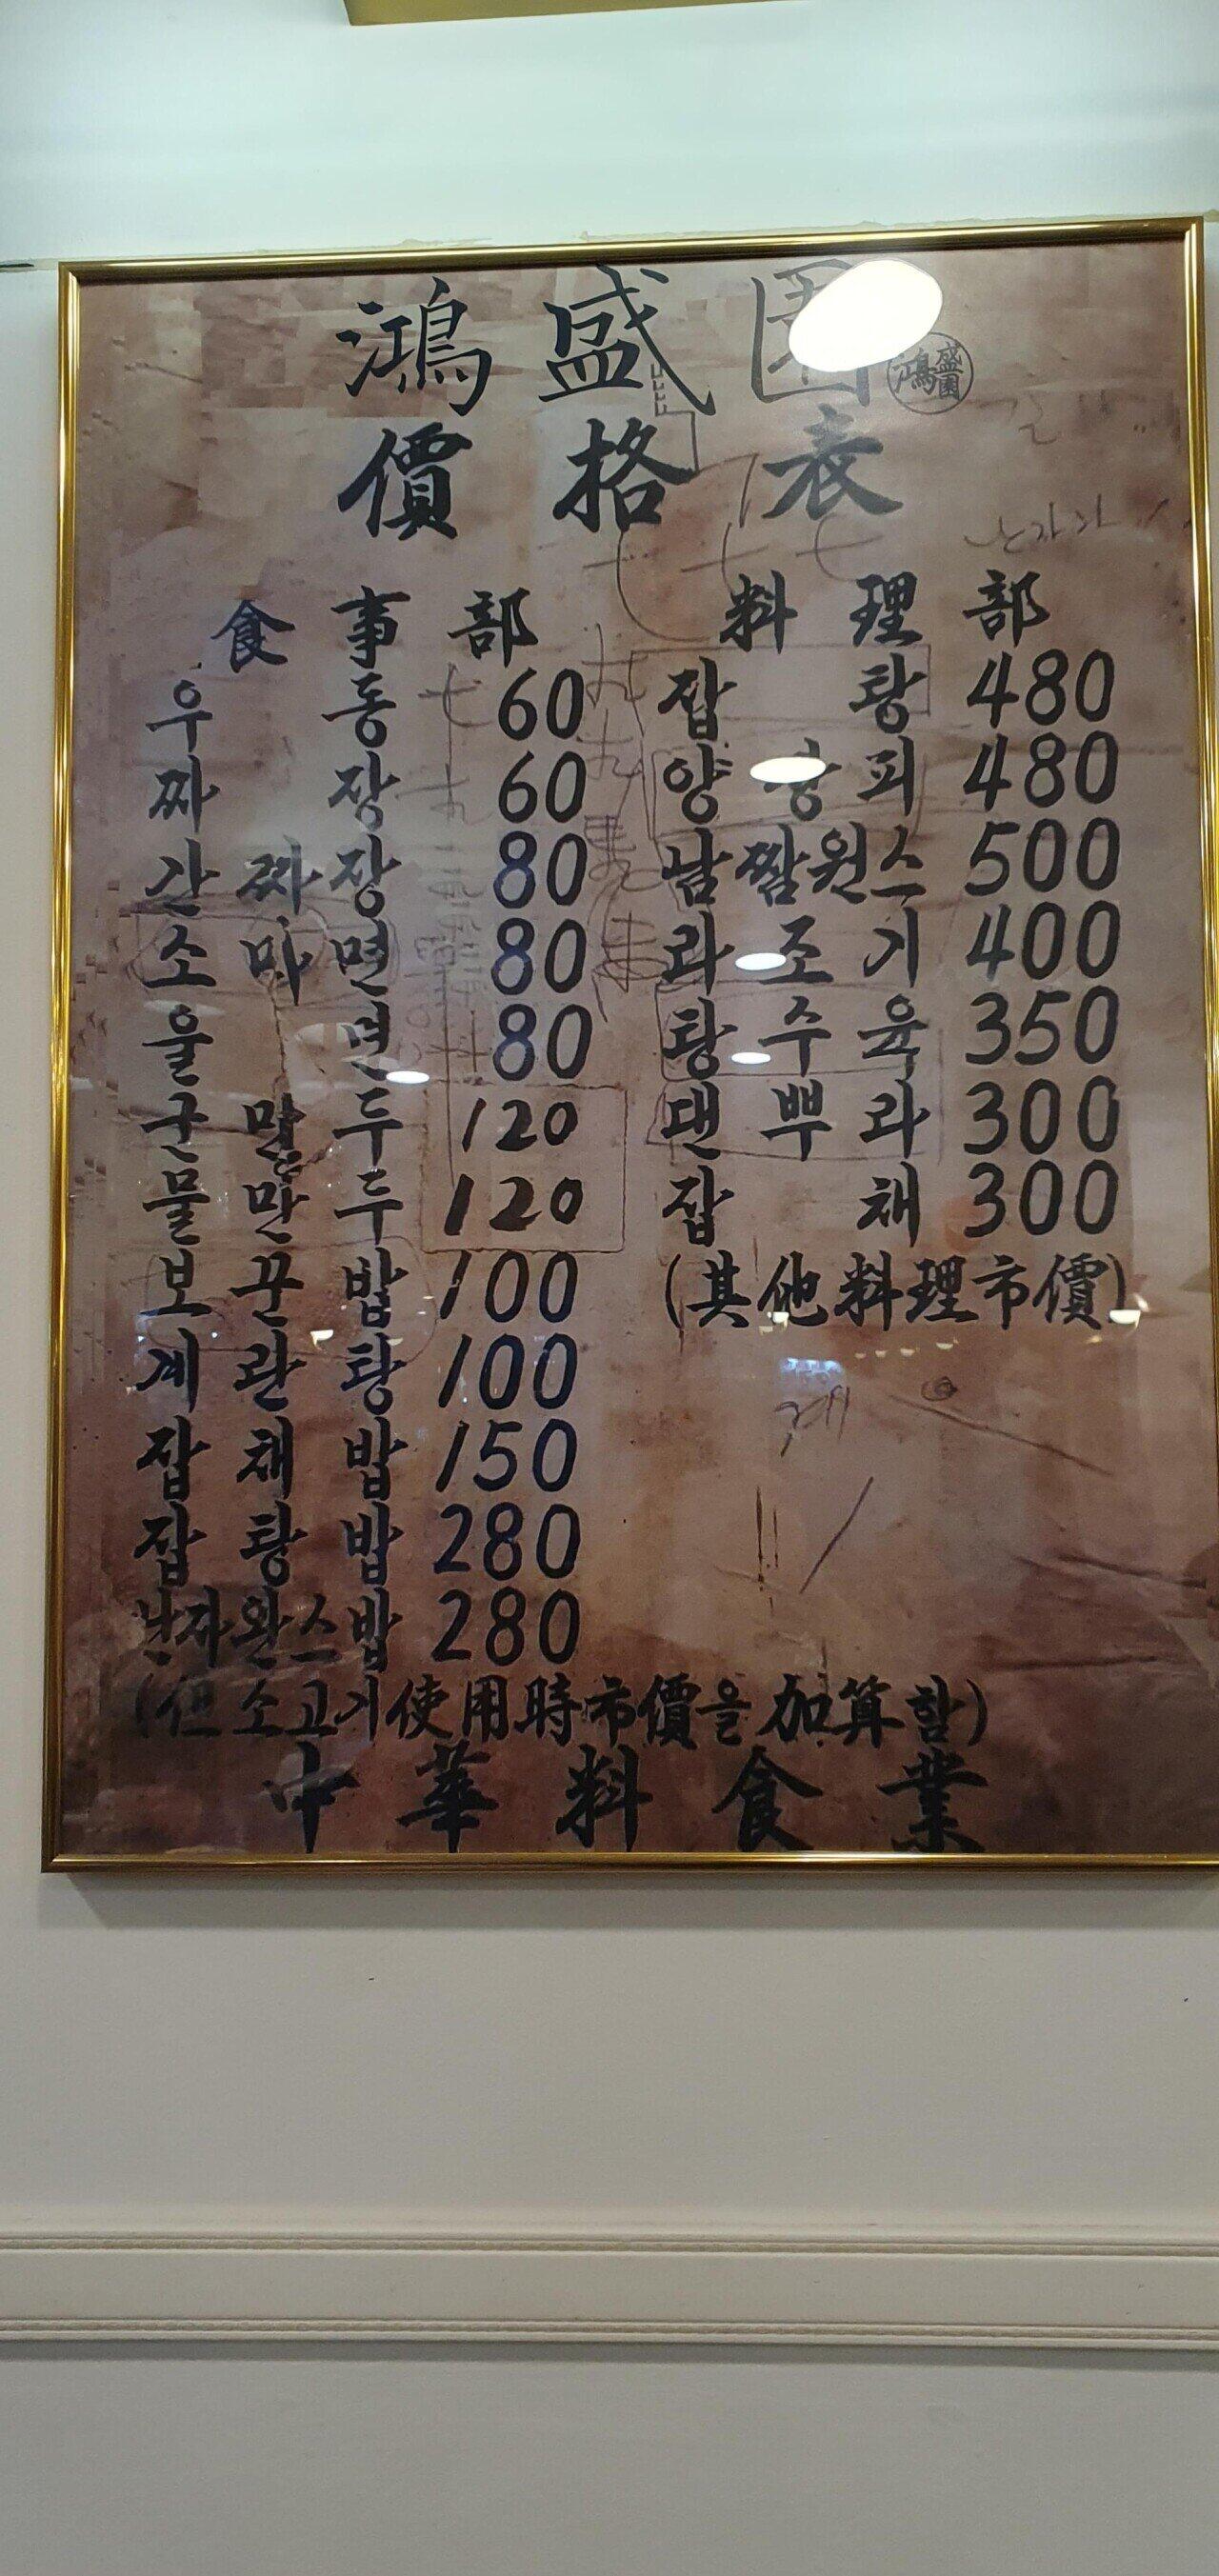 鴻盛園
鴻盛園
價格表
食事部
우동 60
짜장 60
간짜장 80
소마면 80
울면 80
군만두 120
물만두 120
보꾼밥 100
계란탕 100
잡채밥 150
잡탕밥 280
난자완스밥 280
(但소고기使用時市價을加算함)
料理部
잡탕 480
양장피 480
남짬원스 500
라조기 400
탕수육 350
댄뿌라 300
잡채 300
(其他料理市價)
中華料食業